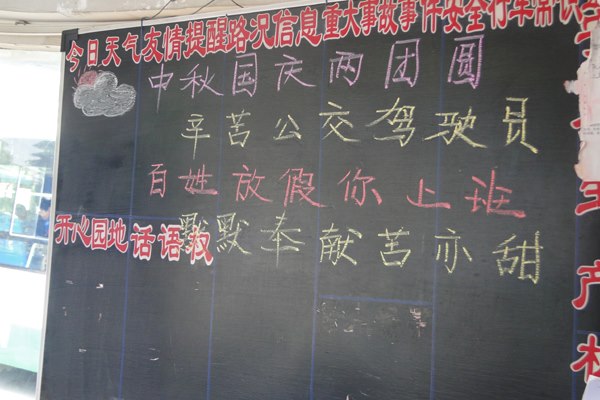 今日天气友情提醒路况信息重大事故事件安全行车常识
中秋国庆两团圆
辛苦公交驾驶员
百姓放假你上班
开心园地话语权
默默奉献苦亦甜
生产